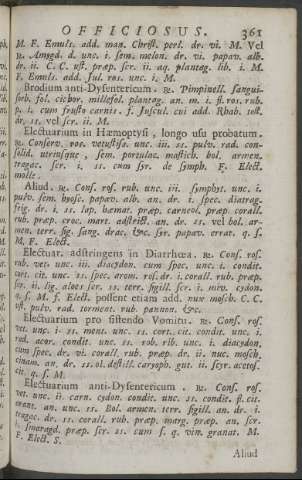 OFFICIOSUS. 361
M. F. Emuls. add. man. Christ. perl. dr. vi. M. Vel
℞. Amygd. d. unc. i. sem. melon. dr. vi. papav. alb.
dr. ii. C. C. ust. præp. scr. ii. aq. plantag. lib. i. M.
F. Emuls. add. Jul. ros. unc. i. M.
Brodium anti-Dysentericum. ℞. Pimpinell. sangui-
sorb. fol. cichor. millefol. plantag. an. m. i. fl. ros. rub.
p. i. cum frusto carnis. f. Juscul. cui add. Rhab. tost.
dr. ss. vel scr. ii. M.
Electuarium in Hæmoptysi, longo usu probatum.
℞. Conserv. ros. vetustiss. unc. iii. ss. pulv. rad. con-
solid. utriusque, sem. portulac. mastich. bol. armen.
tragac. scr. i. ss. cum syr. de symph. F. Elect.
molle.
Aliud. ℞. Cons. ros. rub. unc. iii. symphyt. unc. i.
pulv. sem. hyosc. papav. alb. an. dr. i. spec. diatrag.
frig. dr. i. ss. lap. hæmat. præp. carneol. præp. corall.
rub. præp. croc. mart. adstrict. an. dr. ss. vel bol. ar-
men. terr. sig. sang. drac. &c. syr. papav. errat. q. s.
M. F. Elect.
Electuar. adstringens in Diarrhœa. ℞. Cons. ros.
rub. vet. unc. iii. diacydon. cum spec. unc. i. condit.
cort. cit. unc. ss. spec. arom. ros. dr. i. corall. rub. præp.
scr. ii. lig. aloes scr. ss. terr. sigill. scr. i. miv. cydon.
q. s. M. f. Elect. possent etiam add. nux mosch. C. C.
ust. pulv. rad. torment. rub. pannon. &c.
Electuarium pro sistendo Vomitu. ℞. Cons. ros.
vet. unc. i. ss. ment. unc. ss. cort. cit. condit. unc. i.
rad. acor. condit. unc. ss. rob. rib. unc. i. diacydon.
cum spec. dr. vi. corall. rub. præp. dr. ii. nuc. mosch.
cinam. an. dr. ss. ol. destill. caryoph. gut. ii. syr. acetos.
cit. q. s. M.
Electuarium anti-Dysentericum. ℞. Cons. ros.
vet. unc. ii. carn. cydon. condit. unc. ss. condit. fl. cit.
an. unc. ss. Bol. armen. terr. sigill. an. dr. i.
tragac. dr. ss. corall. rub. præp. marg. præp. an. scr.
smaragd. præp. scr. ss. cum s. q. vin. granat. M.
F. Elect. S.
Aliud